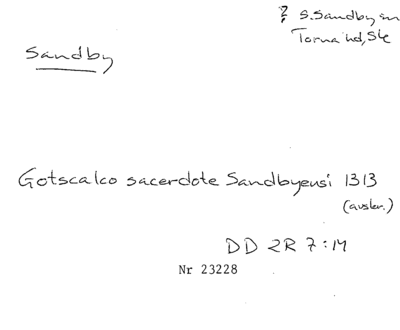 ? S. Sandby sn
Torna hd, Sk
Sandby
Gotscalco sacerdote Sandbyensi 1313
(avskr.)
DD 2R 7:14
Nr 23228